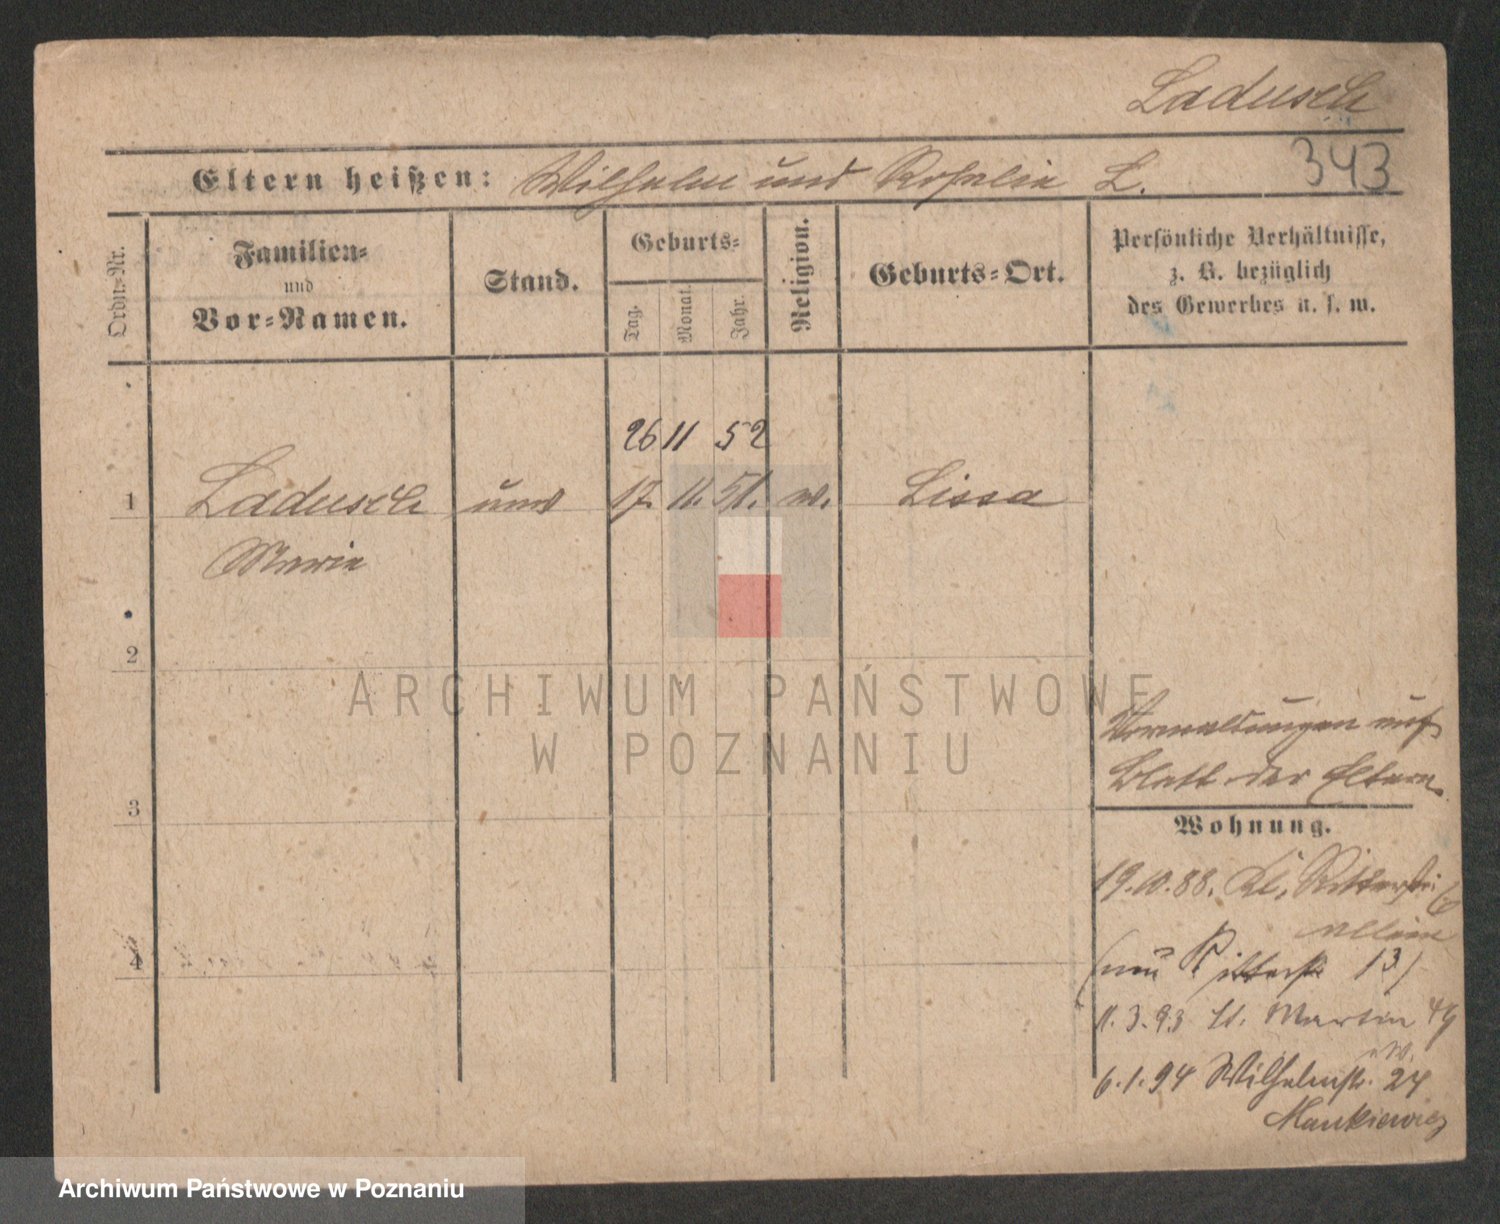 Ladusch
343
Eltern heißen: Wilhelm und Rosalie L.
Ordn.-Nr.
Familien-
und
Vor-Namen.
Stand.
Geburts-
Tag.
Monat.
Jahr.
Religion.
Geburts-Ort.
Persönliche Verhältnisse,
z. B. bezüglich
des Gewerbes u. s. w.
26 11 52
1 Ladusch unv 17. 11. 51. ev. Lissa
Marie
2
3
4
auf
Blatt der Eltern.
Wohnung.
19.10.88. Kl. Ritterstr.
allein
(neu Ritterstr 13)
11.3.93 St. Martin 49
6.1.94 Wilhelmstr. 24
Mankiewicz
ARCHIWUM PAŃSTWOWE
W POZNANIU
Archiwum Państwowe w Poznaniu